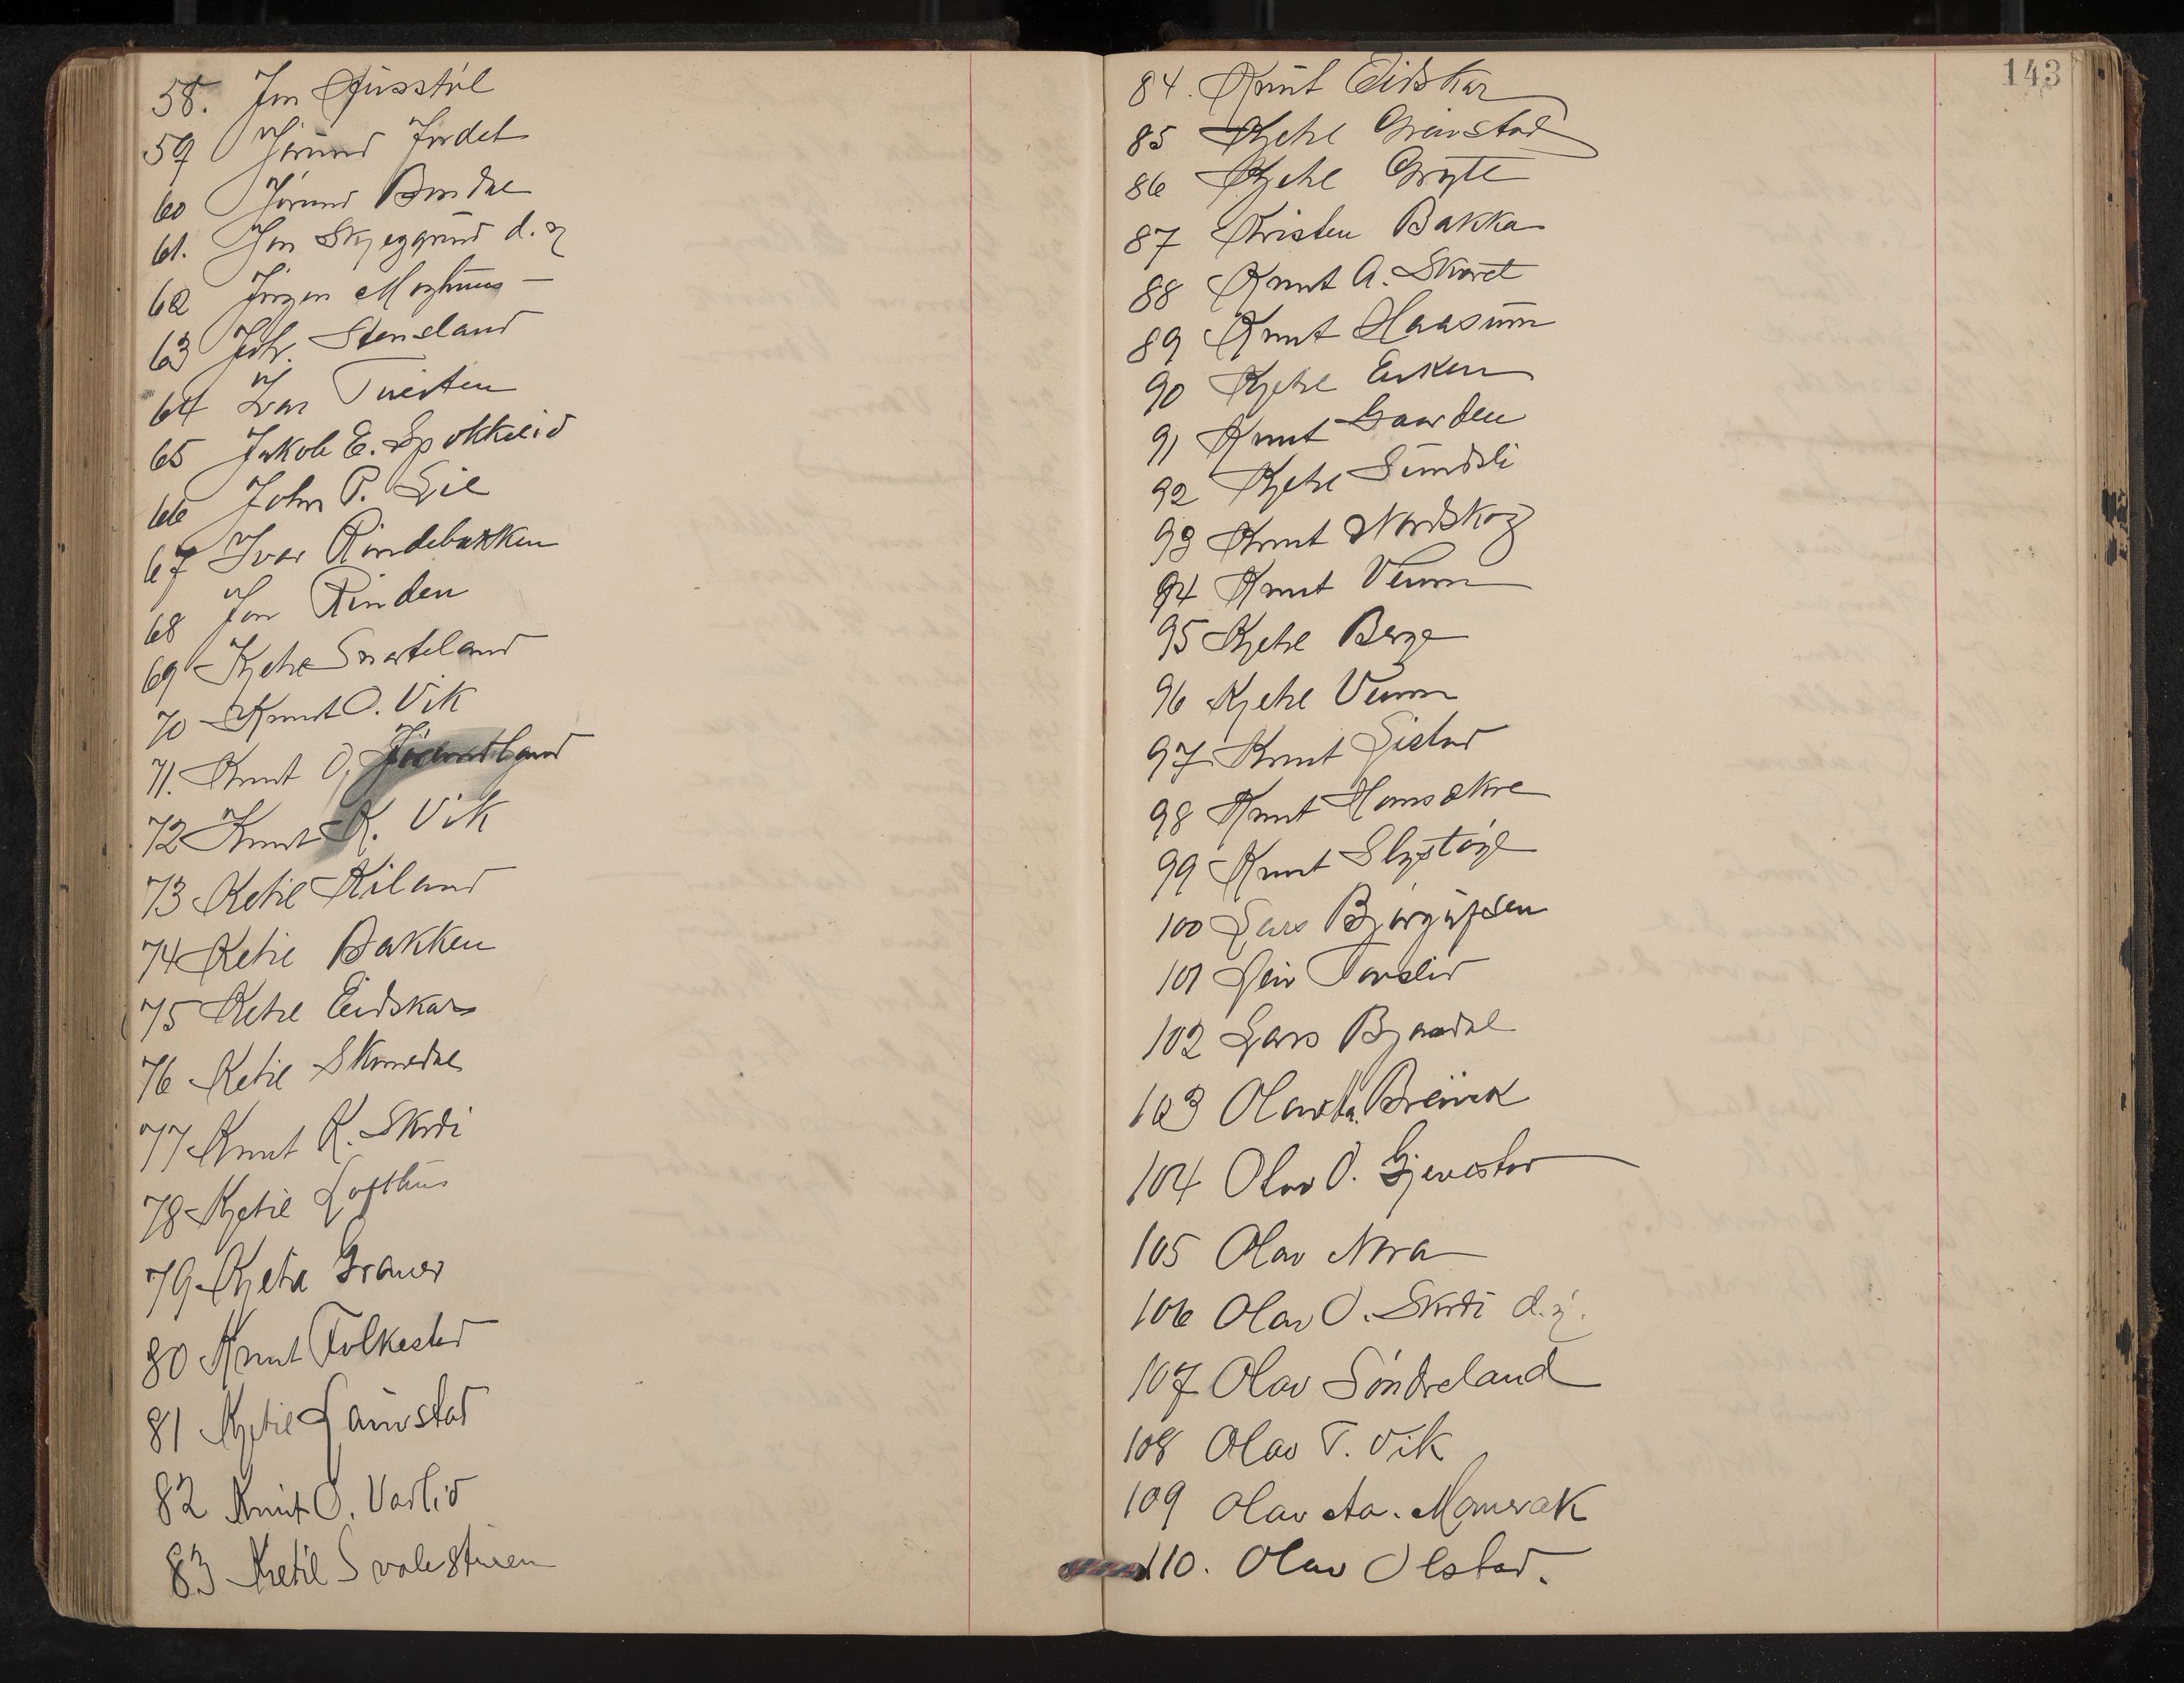 58. Jon Husstøl
59 Jörund Jordet
60 Jörund Bondal
61. Jon Skjeggrund d. y
62 Jörgen Moghuus —
63 Joh. Stensland
64 Ivar Tveiten
65 Jakob E. Spokkelid
66 John P. Lie
67 Ivar Rindebakken
68 Jon Rinden
69 Kjetil Svarteland
70 Knut O. Vik
71. Knut O. Jörundland
72 Knut K. Vik
73 Ketil Kiland
74 Ketil Bakken
75 Ketil Eidskar
76 Ketil Skomedal
77 Knut K. Skrdi
78 Kjetil Lofthus
79 Kjetil Graver
80 Knut Folkestad
81 Kjetil Launstad
82 Knut O. Vaslid
83 Ketil Svalestuen
143
84. Knut Eidskar
85 Kjetil Grivstad
86 Kjetil Gryte
87 Kristen Bakka
88 Knut A. Skoret
89 Knut Haasum
90 Kjetil Eiken
91 Knut Gaarden
92 Kjetil Sundsli
93 Knut Nordskog
94 Knut Veum
95 Kjetil Berge
96 Kjetil Veum
97 Knut Gistad
98 Knut Homsakre
99 Knut Slystøyl
100 Lars Bjørgufsen
101 Leiv Torslid
102 Lars Bjaadal
103 Olav Aa. Breivik
104 Olav O. Gjevestad
105 Olav Nora
106 Olav O. Skrdi d.y.
107 Olav Söndreland
108 Olav T. Vik
109 Olav Aa. Momrak
110. Olav Olstad.